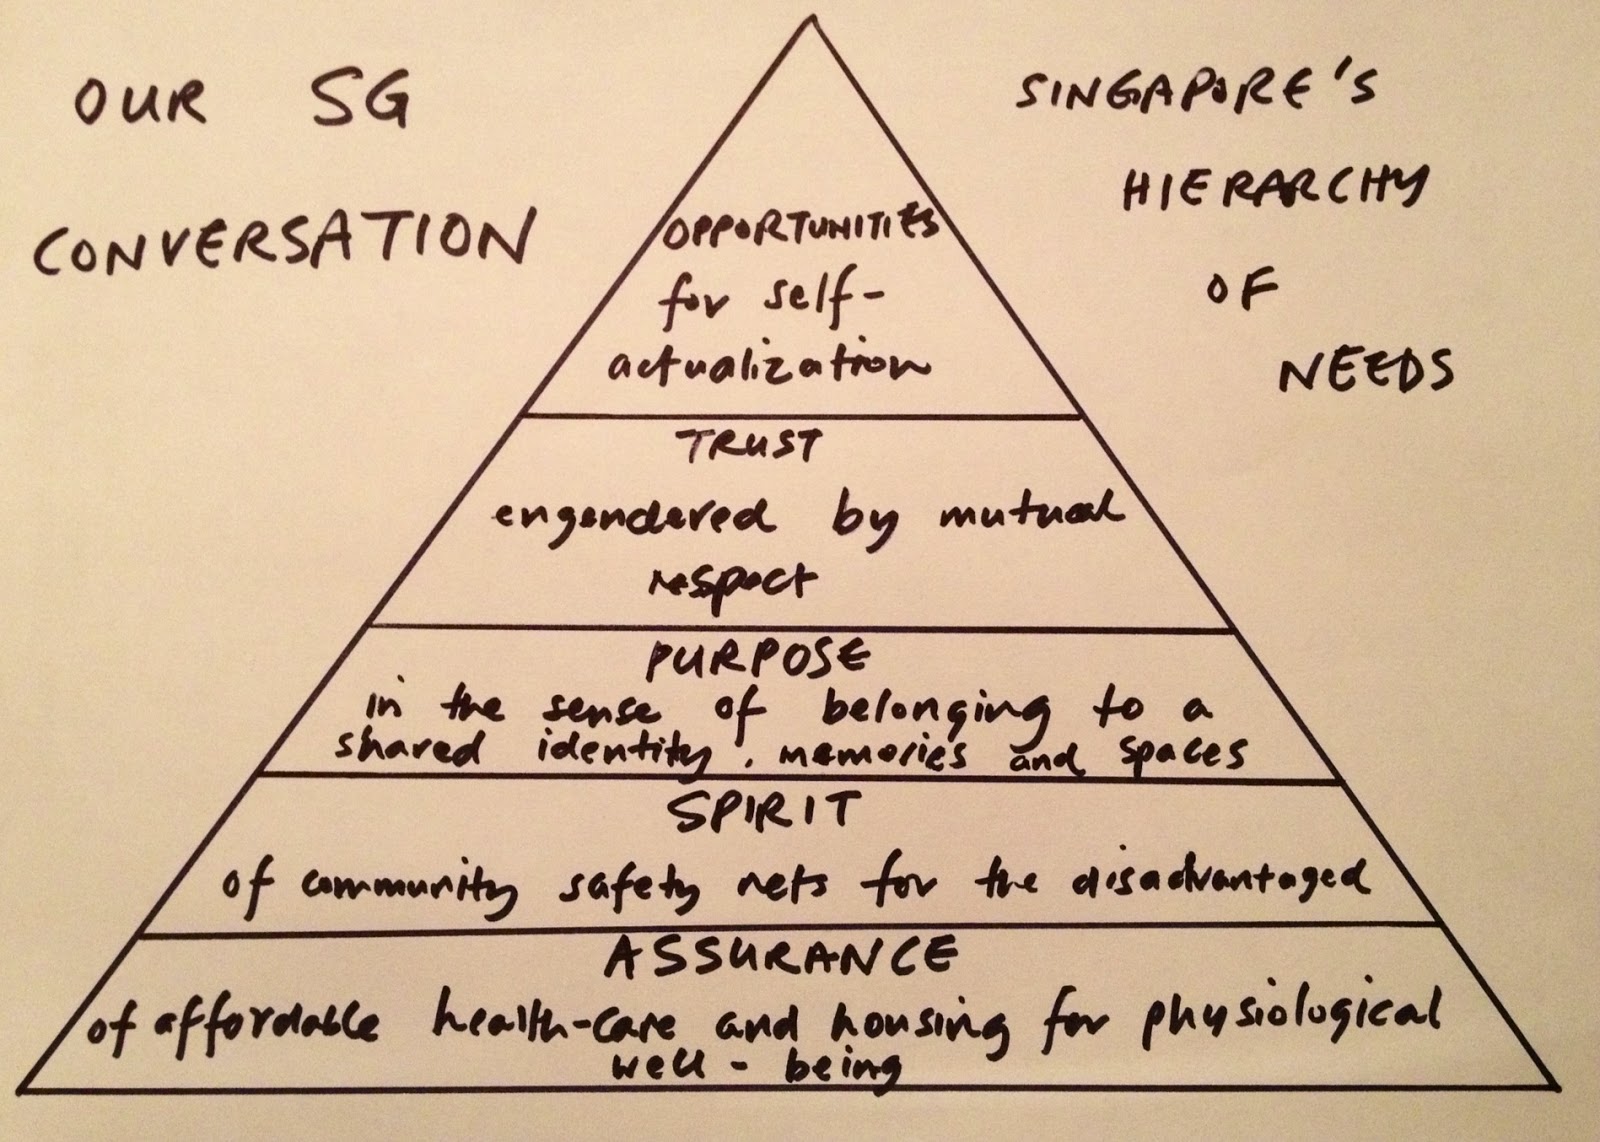 OUR SG
CONVERSATION
SINGAPORE'S
HIERARCHY
OF
NEEDS
OPPORTUNITIES
for self-
actualization
TRUST
engendered by mutual
respect
PURPOSE
in the sense of belonging to a
shared identity, memories and spaces
SPIRIT
of community safety nets for the disadvantaged
ASSURANCE
of affordable health-care and housing for physiological
well-being